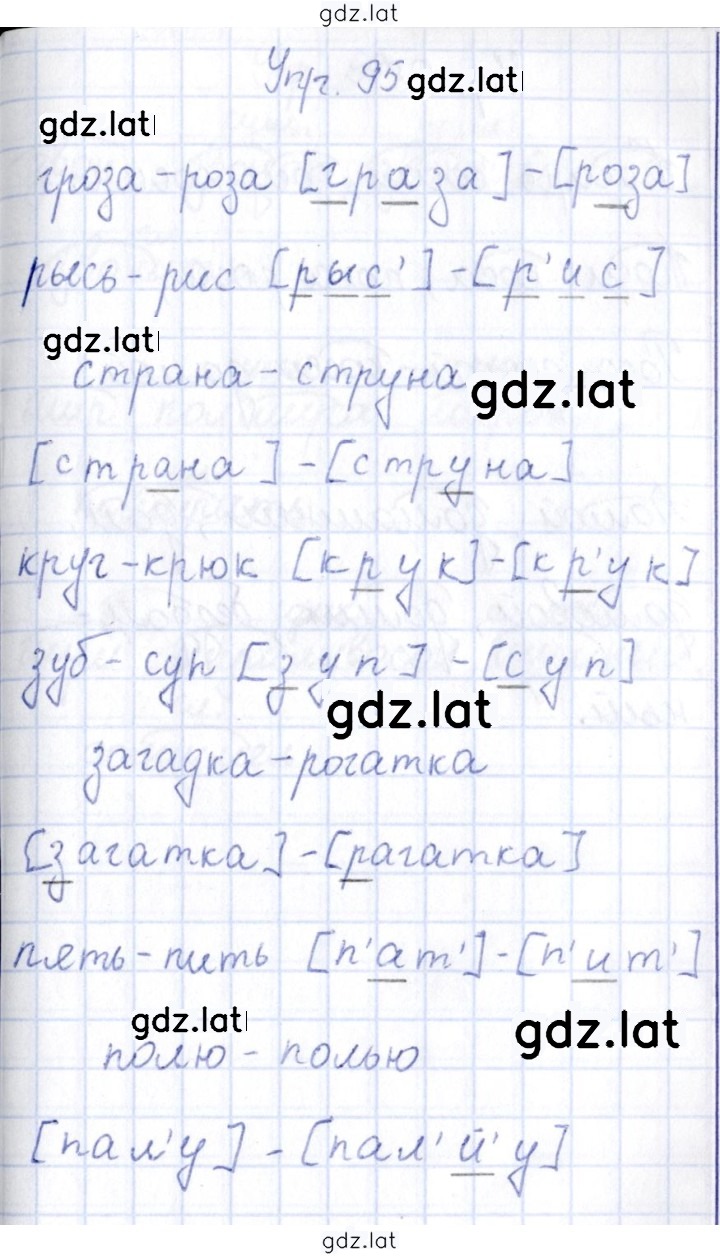 gdz.lat
Упр. 95 gdz.lat
gdz.lat
гроза - роза [граза] - [роза]
рысь - рис [рыс'] - [р'ис]
gdz.lat
страна - струна gdz.lat
[страна] - [струна]
круг - крюк [крук] - [кр'ук]
зуб - суп [зуп] - [суп]
gdz.lat
загадка - рогатка
[загатка] - [рагатка]
пять - пить [п'ат'] - [п'ит']
gdz.lat gdz.lat
полю - полью
[пал'у] - [пал'й'у]
gdz.lat